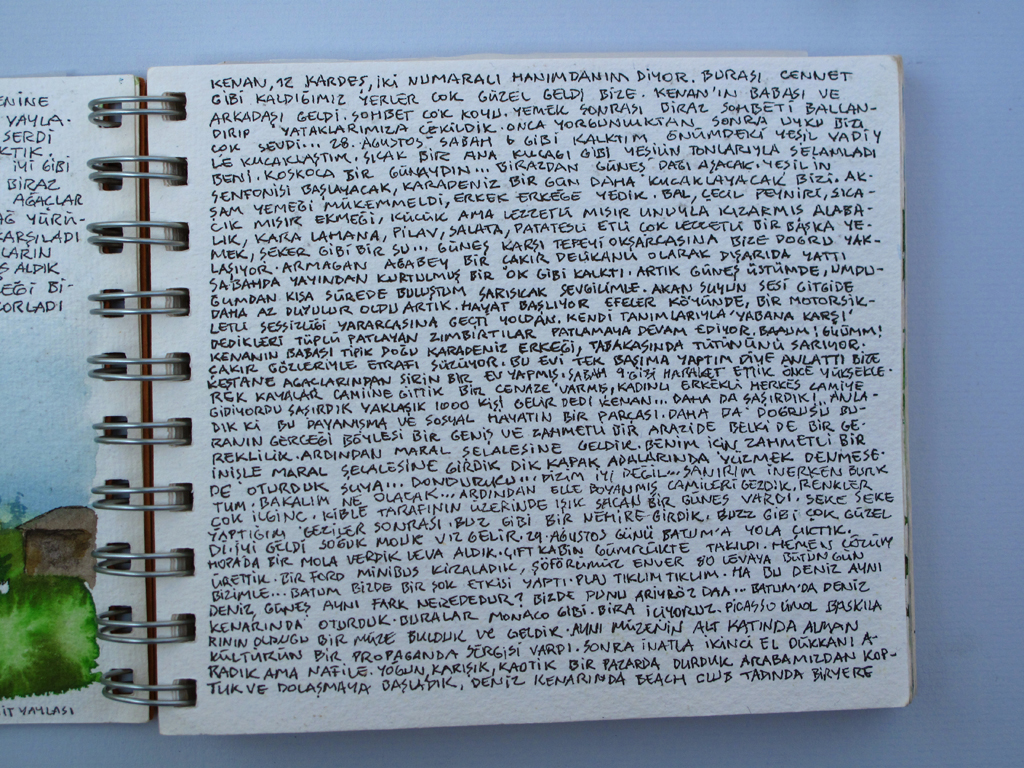 ENİNE
YAYLA-
SERDİ
KTIK.
İYİ GİBİ
BİRAZ
AĞAÇLAR
AĞ YÜRÜ-
KARŞILADI
LARIN
Ş ALDIK
EĞİ Bİ-
ORLADI
İT YAYLASI
KENAN, 12 KARDEŞ, İKİ NUMARALI HANIMDANIM DİYOR. BURASI CENNET
GİBİ KALDIĞIMIZ YERLER ÇOK GÜZEL GELDİ BİZE. KENAN'IN BABASI VE
ARKADAŞI GELDİ. SOHBET ÇOK KOYU. YEMEK SONRASI BİRAZ SOHBETİ BALLAN-
DIRIP YATAKLARIMIZA ÇEKİLDİK. ONCA YORGUNLUKTAN SONRA UYKU BİZİ
ÇOK SEVDİ... 28 AĞUSTOS SABAH 6 GİBİ KALKTIM ÖNÜMDEKİ YEŞİL VADİY
LE KUCAKLAŞTIM. SICAK BİR ANA KUCAĞI GİBİ YEŞİLİN TONLARIYLA SELAMLADI
BENİ. KOSKOCA BİR GÜNAYDIN... BİRAZDAN GÜNEŞ DAĞI AŞACAK. YEŞİLİN
SENFONİSİ BAŞLIYACAK, KARADENİZ BİR GÜN DAHA KUCAKLAYACAK BİZİ. AK-
ŞAM YEMEĞİ MÜKEMMELDİ, ERKEK ERKEĞE YEDİK. BAL, ÇEÇİL PEYNİRİ, SICA-
CIK MISIR EKMEĞİ, KÜÇÜK AMA LEZZETLİ MISIR UNUYLA KIZARMIŞ ALABA-
LIK, KARA LAHANA, PİLAV, SALATA, PATATESLİ ETLİ ÇOK LEZZETLİ BİR BAŞKA YE-
MEK, ŞEKER GİBİ BİR SU... GÜNEŞ KARŞI TEPEYİ OKŞARCASINA BİZE DOĞRU YAK-
LAŞIYOR. ARMAĞAN AĞABEY BİR ÇAKIR DELİKANLI OLARAK DIŞARIDA YATTI
SABAHDA YAYINDAN KURTULMUŞ BİR OK GİBİ KALKTI. ARTIK GÜNEŞ ÜSTÜMDE, UMDU-
ĞUMDAN KISA SÜREDE BULUŞTUM SARISICAK SEVGİLİMLE. AKAN SUYUN SESİ GİTGİDE
DAHA AZ DUYULUR OLDU ARTIK. HAYAT BAŞLIYOR EFELER KÖYÜNDE, BİR MOTORSİK-
LETLİ SESSİZLİĞİ YARARCASINA GEÇTİ YOLDAN. KENDİ TANIMLARIYLA 'YABANA KARŞI'
DEDİKLERİ TÜPLÜ PATLAYAN ZIMBIRTILAR PATLAMAYA DEVAM EDİYOR. BAAUM! GÜMM!
KENANIN BABASI TİPİK DOĞU KARADENİZ ERKEĞİ, TABAKASINDA TÜTÜNÜNÜ SARIYOR.
ÇAKIR GÖZLERİYLE ETRAFI SÜZÜYOR. BU EVİ TEK BAŞIMA YAPTIM DİYE ANLATTI BİZE
KESTANE AĞAÇLARINDAN ŞİRİN BİR EV YAPMIŞ. SABAH 9 GİBİ HAREKET ETTİK ÖNCE YÜKSEKLE-
REK KAYALAR CAMİİNE GİTTİK BİR CENAZE VARMIŞ, KADINLI ERKEKLİ HERKES CAMİYE
GİDİYORDU ŞAŞIRDIK YAKLAŞIK 1000 KİŞİ GELİR DEDİ KENAN... DAHA DA ŞAŞIRDIK! ANLA-
DIK Kİ BU DAYANIŞMA VE SOSYAL HAYATIN BİR PARÇASI. DAHA DA DOĞRUSU BU-
RANIN GERÇEĞİ BÖYLESİ BİR GENİŞ VE ZAHMETLİ BİR ARAZİDE BELKİ DE BİR GE-
REKLİLİK. ARDINDAN MARAL ŞELALESİNE GELDİK. BENİM İÇİN ZAHMETLİ BİR
İNİŞLE MARAL ŞELALESİNE GİRDİK DİK KAPAK ADALARINDA YÜZMEK DENMESE-
DE OTURDUK SUYA... DONDURUCU... DİZİM İYİ DEĞİL... SANIRIM İNERKEN BURK
TUM. BAKALIM NE OLACAK... ARDINDAN ELLE BOYANMIŞ CAMİLERİ GEZDİK, RENKLER
ÇOK İLGİNÇ. KIBLE TARAFININ ÜZERİNDE IŞIK SAÇAN BİR GÜNEŞ VARDI. SEKE SEKE
YAPTIĞIM GEZİLER SONRASI. BUZ GİBİ BİR NEHİRE GİRDİK. BUZZ GİBİ ÇOK GÜZEL
Dİ. İYİ GELDİ SOĞUK MOUK VIZ GELİR. 29 AĞUSTOS GÜNÜ BATUM'A YOLA ÇIKTIK.
HOPADA BİR MOLA VERDİK LEVA ALDIK. ÇİFT KABİN GÜMRÜKTE TAKILDI. HEMEN ÇÖZÜM
ÜRETTİK. BİR FORD MİNİBÜS KİRALADIK, ŞÖFÖRÜMÜZ ENVER 80 LEVAYA BÜTÜN GÜN
BİZİMLE... BATUM BİZDE BİR ŞOK ETKİSİ YAPTI. PLAJ TIKLIM TIKLIM. HA BU DENİZ AYNI
DENİZ GÜNEŞ AYNI FARK NEREDEDUR? BİZDE BUNU ARIYRÖZ DAA... BATUM'DA DENİZ
KENARINDA OTURDUK. BURALAR MONACO GİBİ. BİRA İÇİYORUZ. PICASSO ÜNOL BASKILA
RININ OLDUĞU BİR MÜZE BULDUK VE GELDİK. AYNI MÜZENİN ALT KATINDA ALMAN
KÜLTÜRÜN BİR PROPAGANDA SERGİSİ VARDI. SONRA İNATLA İKİNCİ EL DÜKKANI A-
RADIK AMA NAFİLE. YOĞUN, KARIŞIK, KAOTİK BİR PAZARDA DURDUK ARABAMIZDAN KOP-
TUK VE DOLAŞMAYA BAŞLADIK, DENİZ KENARINDA BEACH CLUB TADINDA BİR YERE